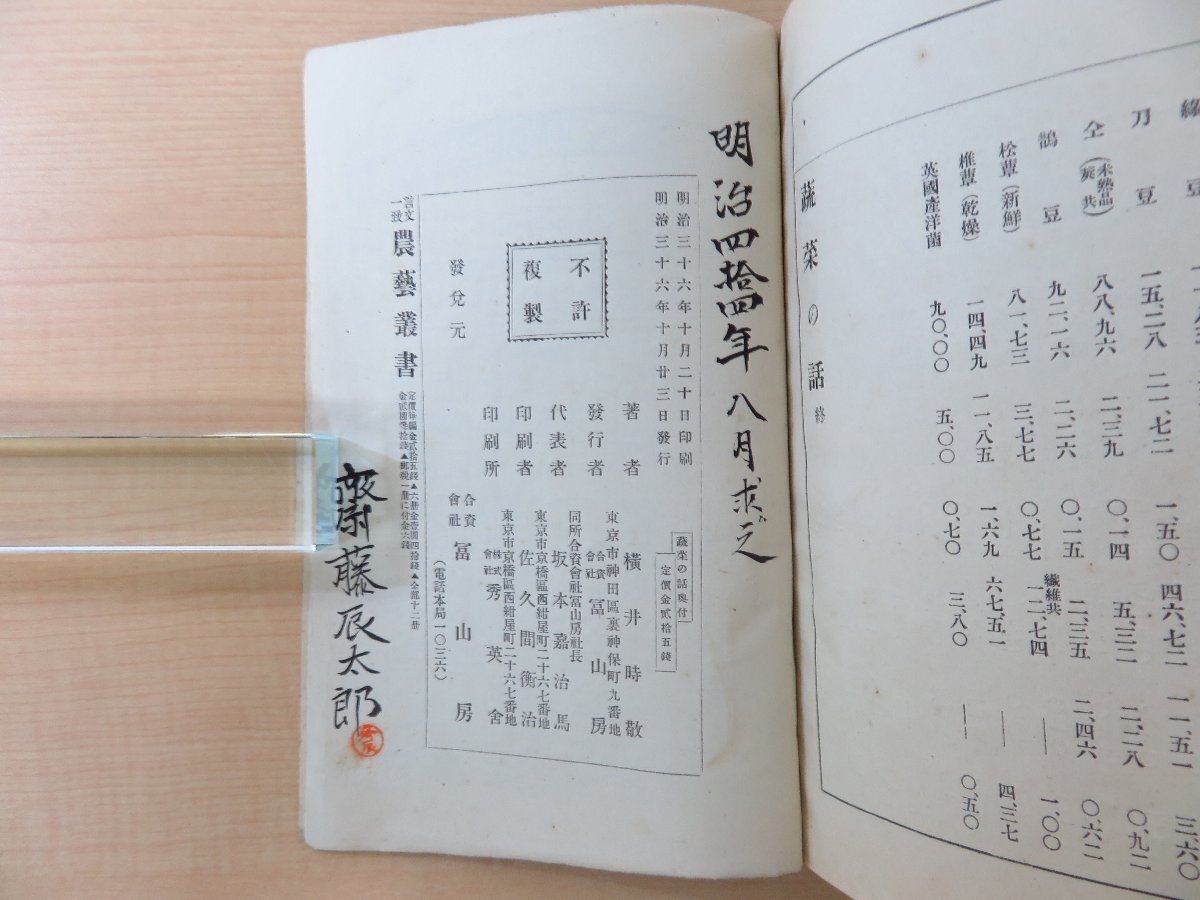 刀豆 一五、二八 二一、七二 一、五〇 四六、七二 一一、五一 三、六〇
仝(未熟品莢共) 八八、九六 二、三九 〇、一四 五、三二 二、二八 〇、九二
鵲豆 九二、一六 二、二六 〇、一五 二、三五 二、四六 〇、六二
松蕈(新鮮) 八一、七三 三、七七 〇、七七 繊維共 一二、七四 ― 一、〇〇
椎蕈(乾燥) 一四、四九 一一、八五 一、六九 六七、五一 ― 四、三七
英國產洋菌 九〇、〇〇 五、〇〇 〇、七〇 三、八〇 ― 〇、五〇
蔬菜の話 終
明治四拾四年八月求之
蔬菜の話奥付
定價金貳拾五錢
明治三十六年十月二十日印刷
明治三十六年十月廿三日發行
不許複製
著者 橫井時敬
東京市神田區裏神保町九番地
發行者 合資會社 冨山房
同所合資會社冨山房社長
代表者 坂本嘉治馬
東京市京橋區西紺屋町二十六七番地
印刷者 佐久間衡治
東京市京橋區西紺屋町二十六七番地
印刷所 株式會社 秀英舍
發兌元 合資會社 冨山房
(電話本局一〇三六)
言文一致 農藝叢書
定價每編金貳拾五錢▲六册金壹圓四拾錢▲全部十二册
齋藤辰太郎